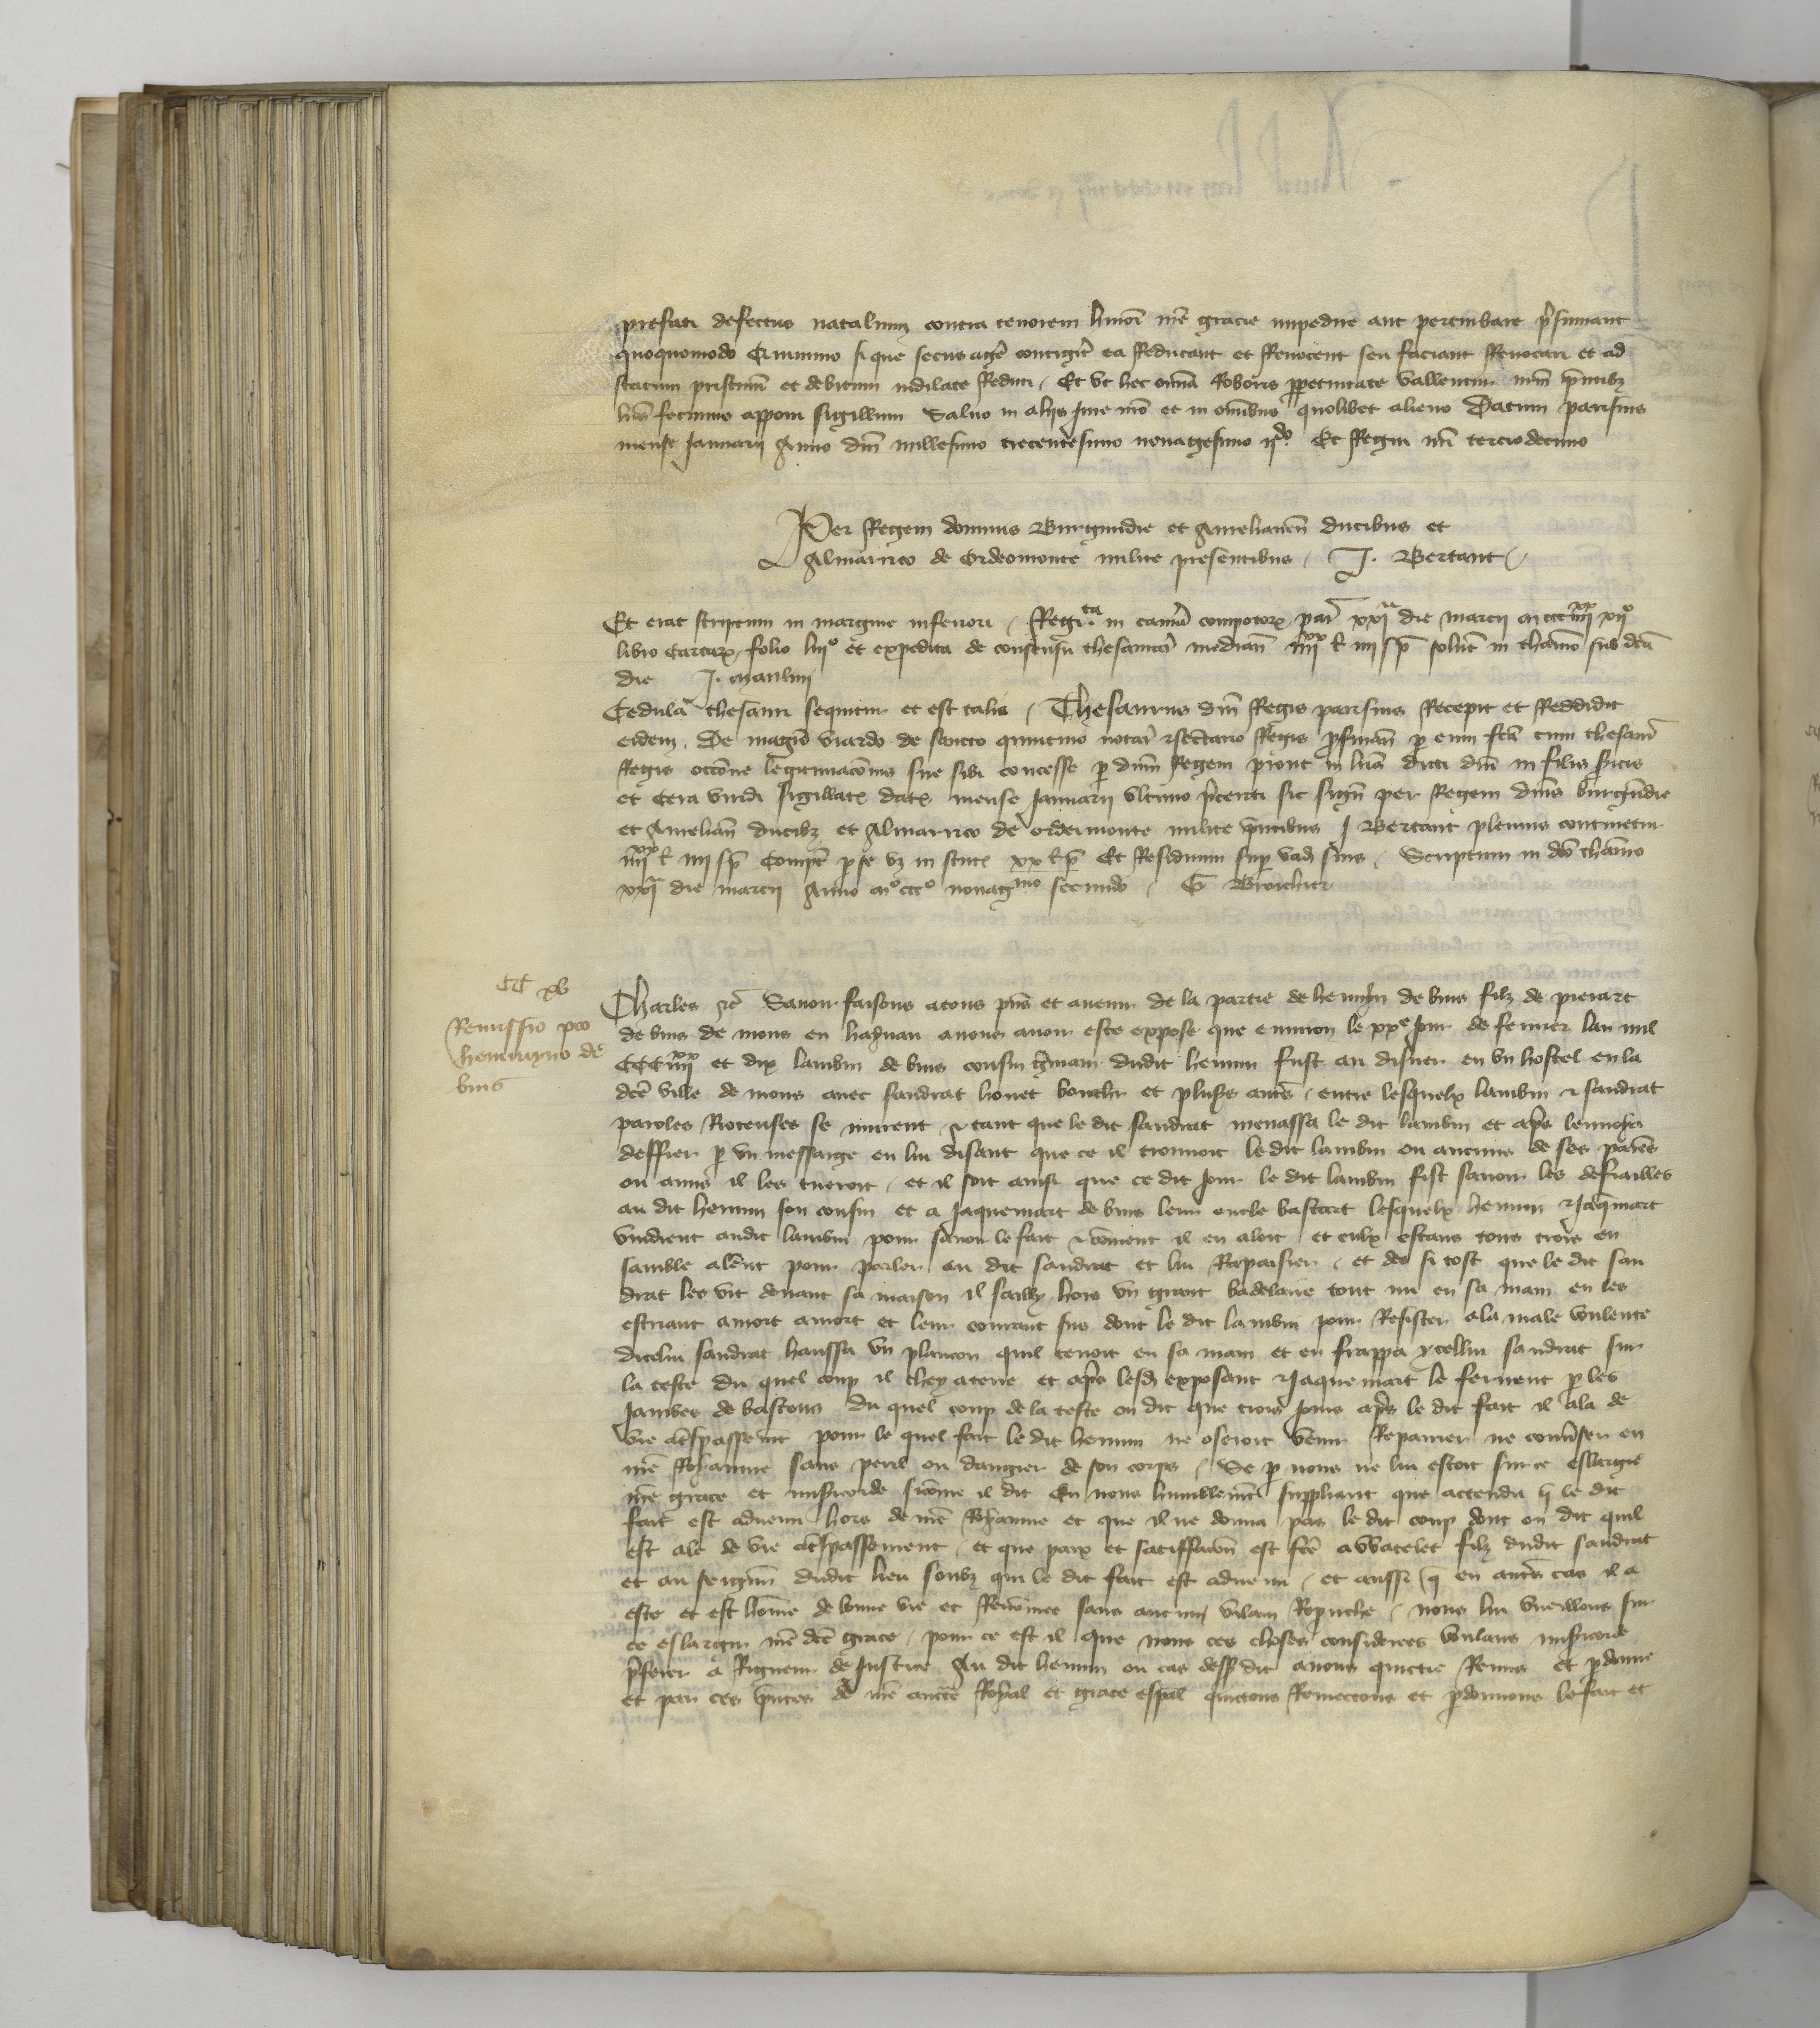 prefati defectus natalium contra tenorem hmoi nre gracie impedire aut perturbare presumant
quoquomodo Quinimo si que secus agere contigerit ea Reducant et Revocent seu faciant Revocari et ad
statum pristinum et debitum indilate Reduci / Et ut hec omnia Roboris perpetuitate vallentur nrm presentibus
litteris fecimus apponi sigillum Salvo in aliis Jure nro et in omnibus quolibet alieno Datum parisius
mense Januarii Anno dni millesimo trecentesimo nonagesimo iido Et Regni nri terciodecimo
Per Regem dominis Burgundie et Aurelianen ducibus et
Almarrico de Ordeomonte milite presentibus / J. Bertaut
Et erat scriptum in margine inferiori / Regta in camera compotorum par xxia die marcii m ccc iiiixx xiio
libro Cartarum folio liio et expedita de consensu thesaurar median iiiixx l iiii s p solut in thesauro sub dicta
die J. Maulin
Cedula thesauri sequitur et est talis / Thesaurus dni Regis parisius Recepit et Reddidit
eidem De magro viardo de sancto quintino notar et secretario Regis pro financia per eum fca cum thesaur
Regis occone legitimacionis sue sibi concesse per dnm Regem prout in lra dicti dni in filis sericis
et Cera viridi sigillat dat mense Januarii ultimo preterit sic sign per Regem dnis burgundie
et Aurelian ducibz et Almarrico de ordeimonte milite presentibus J Bertaut plenius continetur
iiiixx l iiii s p Compt per se vz in scut xx l p Et Residuum sup vad suis / Scriptum in dco thesauro
xxia die marcii Anno mo ccco nonagmo secundo / G
CC xv
Remissio pro
hennino de
bins
Charles etc Savoir faisons a tous pns et avenir de la partie de hennin de bins filz de pierart
de bins de mons en haynau a nous avoir este expose que environ le xxe jour de fevrier lan mil
CCC iiiixx et dix lambin de bins cousin germain dudit hennin fust au disner en un hostel en la
dce ville de mons avec sandrat bouchier et plusrs autres / entre lesquelx lambin et sandrat
paroles Rioteuses se murent / et tant que le dit sandrat menassa le dit lambin et apres lenvoya
deffier par un messaige en lui disant que ce il trouvoit le dit lambin ou aucuns de ses parens
ou amis il les tueroit / et il soit ainsi que ce dit jour le dit lambin fist savoir les defiailles
au dit hennin son cousin et a Jaquemart de bins leur oncle bastart lesquelx hennin et Jaqmart
vindrent audit lambin pour savoir le fait et coment il en aloit et eulx estans tous trois en
samble alerent pour parler au dit sandrat et lui Rapaisier / et des si tost que le dit san
drat les vit devant sa maison il sailly hors un grant badelaire tout nu en sa main en les
escriant a mort a mort et leur courant sus dont le dit lambin pour Resister a la male voulente
dicelui sandrat haussa un plancon quil tenoit en sa main et en frappa ycellui sandrat sur
la teste du quel coup il chey a terre et apres lesd exposant et Jaquemart le ferirent par les
Jambes de bastons du quel coup de la teste on dit que trois jours apres le dit fait il ala de
vie a trespassement pour le quel fait le dit hennin ne oseroit venir Repairier ne converser en
nre Royaume sans peril ou dangier de son corps / Se par nous ne lui estoit sur ce eslargie
nre grace et misericorde si come il dit En nous humblement suppliant que attendu q le dit
fait est advenu hors de nre Royaume et que il ne donna pas le dit coup dont on dit quil
est ale de vie a trespassement / et que paix et satiffaction est fce a Watelet filz dudit sandrat
et au seigneur dudit lieu soubz qui le dit fait est advenu / et aussi q en autres cas il a
este et est home de bonne vie et Renomee sans aucun vilain Reprouche / nous lui vueillons sur
ce eslargir nre dce grace / pour ce est il que nous ces choses considerees voulans misericorde
preferer a Rigueur de Justice Au dit hennin ou cas dessdit avons quictie Remis et pardonne
et par ces presentes de nre aucte Royal et grace espal quictons Remectons et pardonnons le fait et